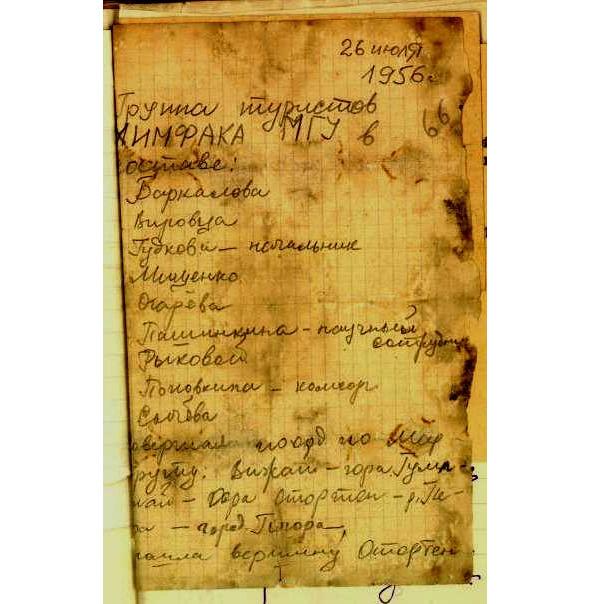 26 июля
1956г.
Группа туристов
ХИМФАКА МГУ в 66
составе:
Баркалова
Вировца
Губкова – начальник
Мищенко
Огарёва
Пашинкина – научный
сотрудник
Рыковой
Поповкина – комсорг
Сычёва
совершала поход по мар-
шруту: Вижай – гора
– гора Отортен – р. Пе-
– город Печора,
вершину Отортен